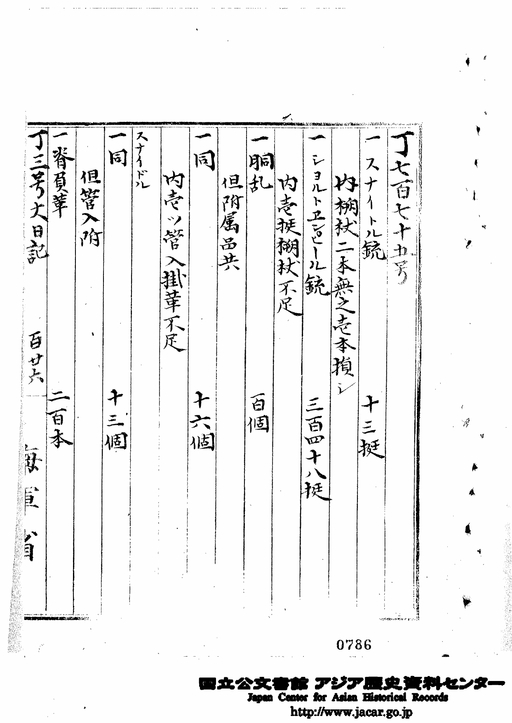 丁七百七十五号
一スナイトル銃 十三挺
内搠杖二本無之壱本損シ
一ショルトエンピール銃 三百四十八挺
内壱挺搠杖不足
一胴乱 百個
但附属品共
一同 十六個
内壱ツ管入掛革不足
スナイドル
一同 十三個
但管入附
一脊負革 二百本
丁三号大日記 百廿六
海軍省
0786
国立公文書館 アジア歴史資料センター
Japan Center for Asian Historical Records
http://www.jacar.go.jp